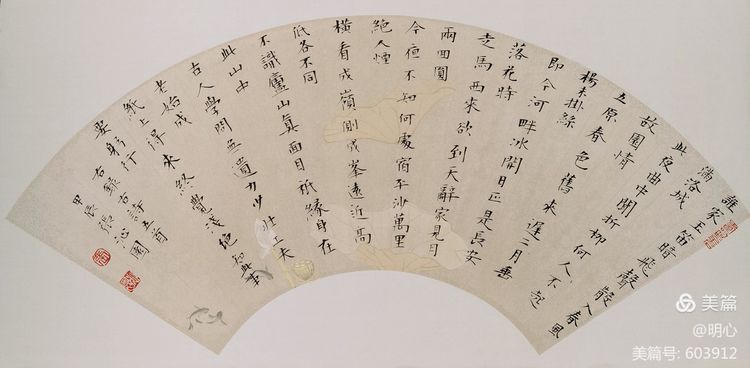 誰家玉笛暗飛聲散入春風
滿洛城
此夜曲中聞折柳何人不起
故園情
五原春色舊來遲二月垂
楊未掛絲
即今河畔冰開日正是長安
落花時
走馬西來欲到天辭家見月
兩回圓
今夜不知何處宿平沙萬里
絕人煙
橫看成嶺側成峯遠近高
低各不同
不識廬山真面目祇緣身在
此山中
古人學問無遺力少壯工夫
老始成
紙上得來終覺淺絕知此事
要躬行
右錄古詩五首
甲辰張沁園
美篇
@明心
美篇号: 603912